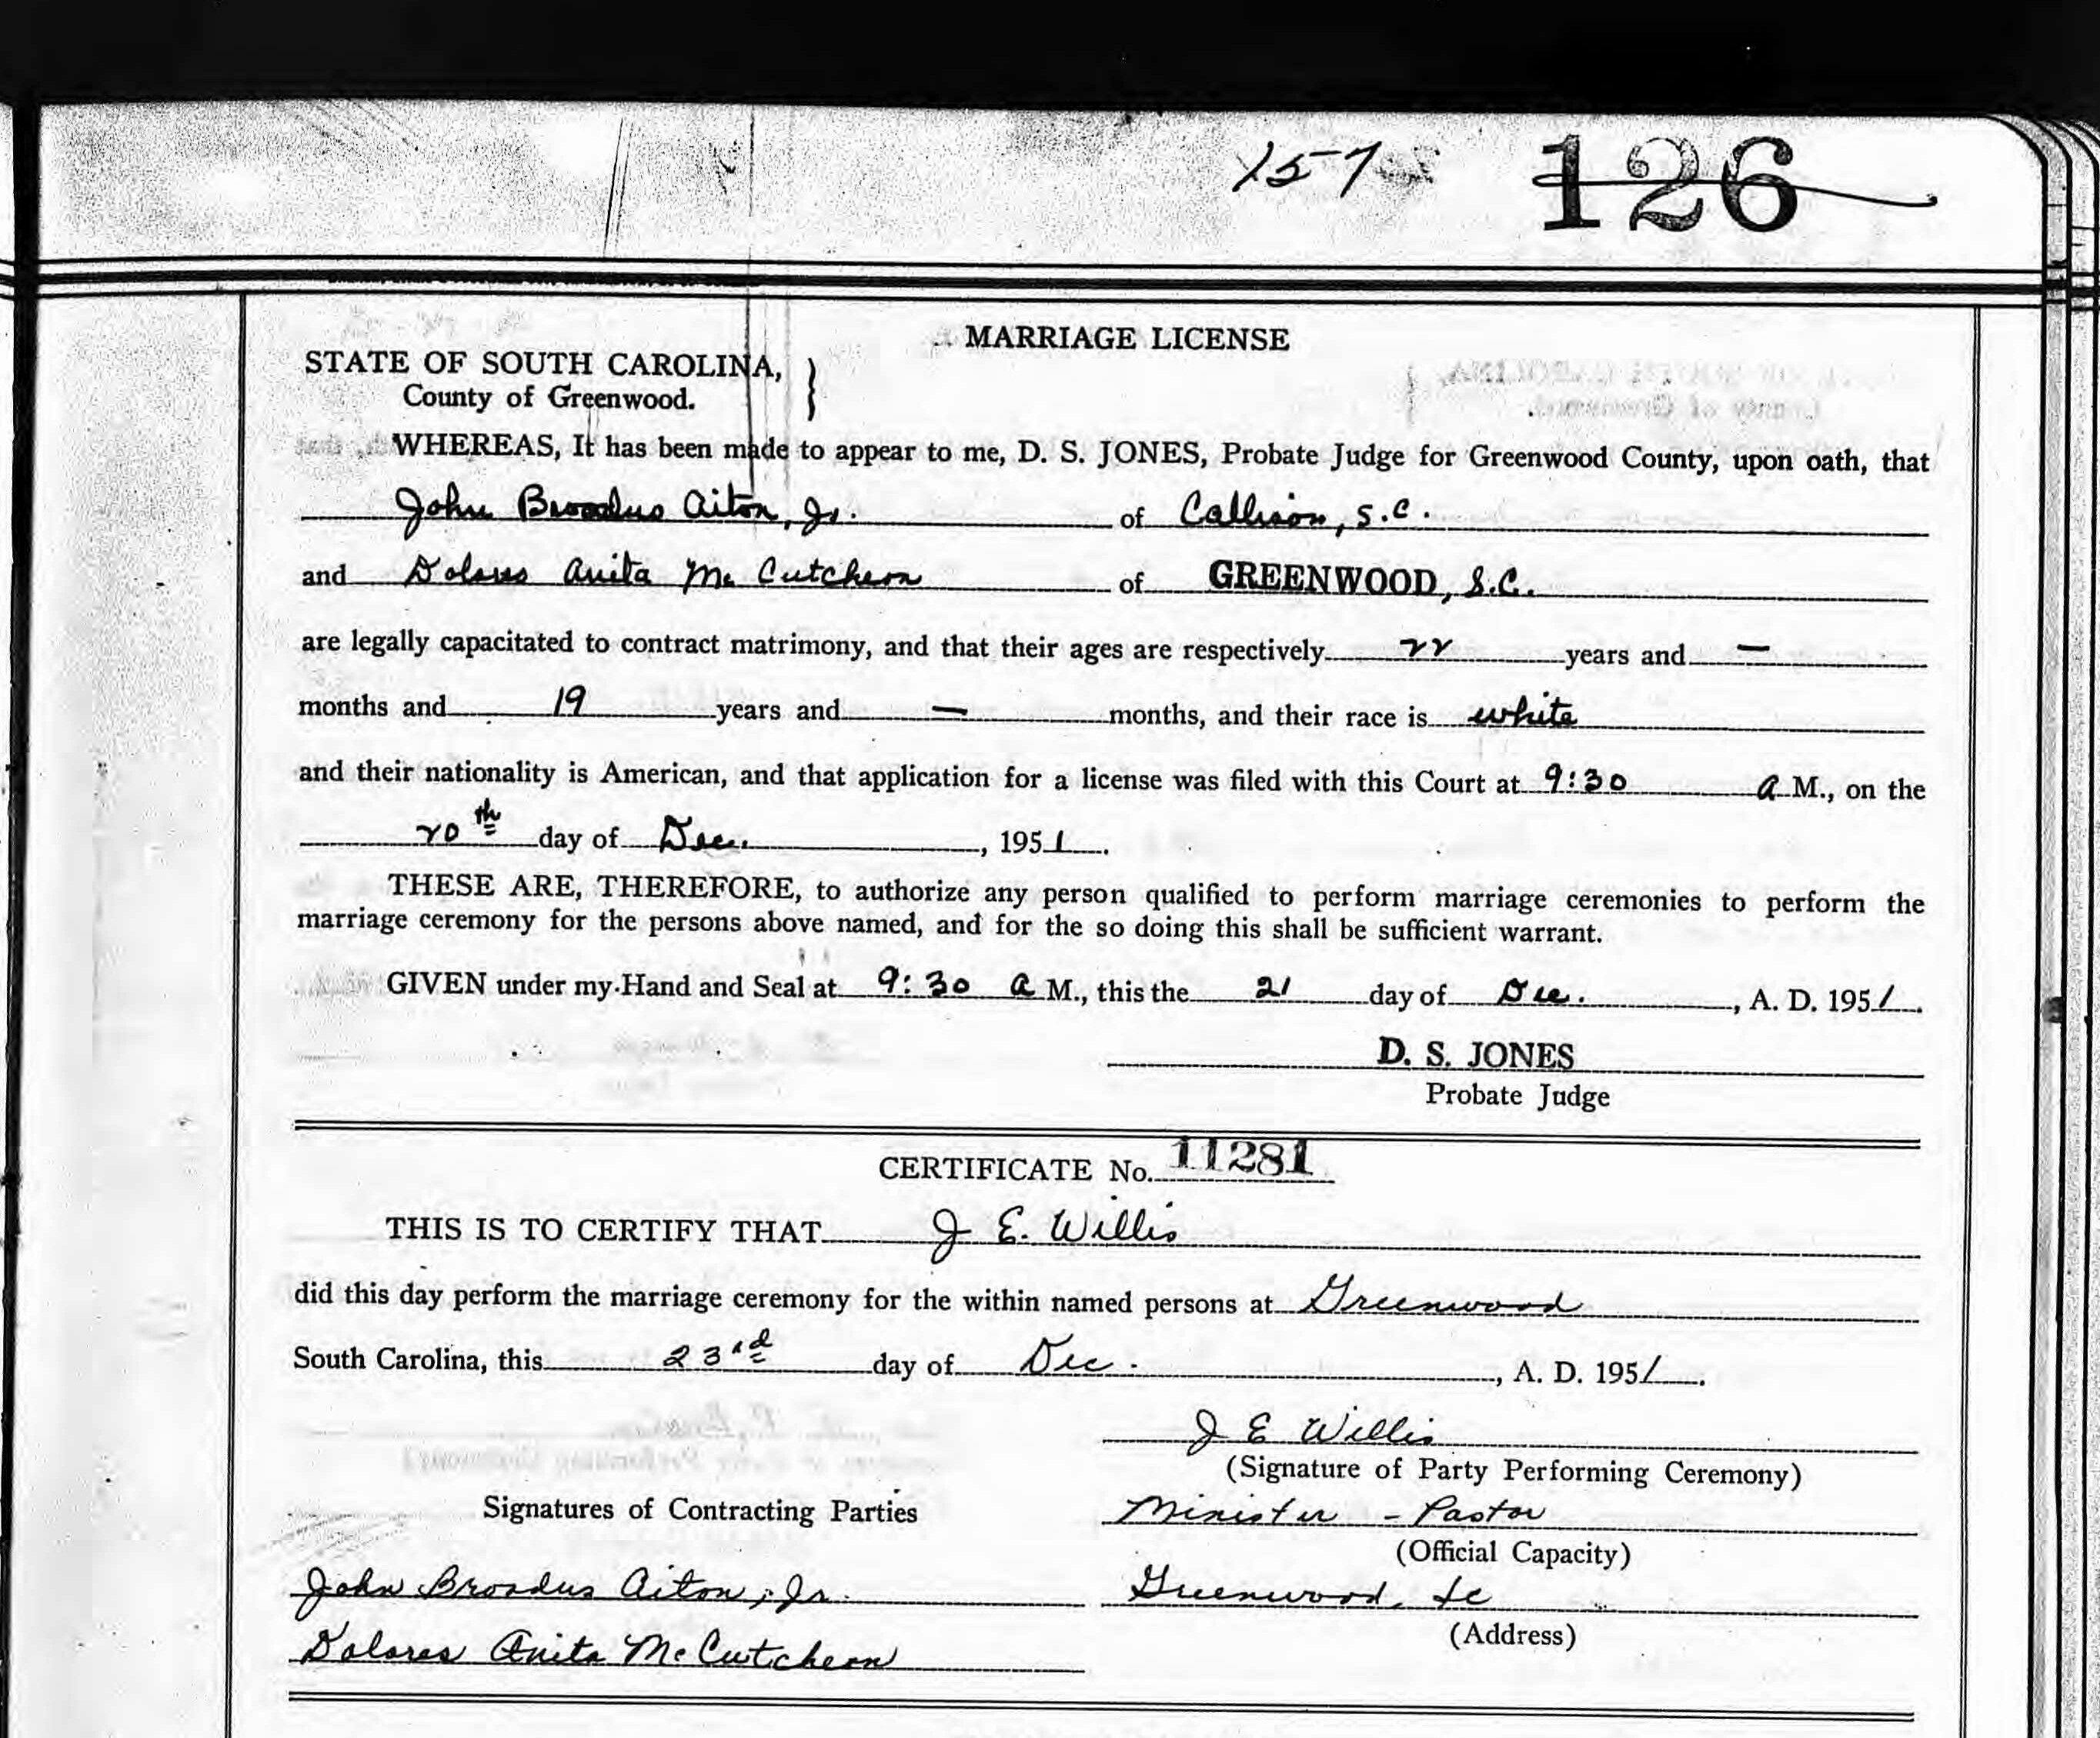 157 126
MARRIAGE LICENSE
STATE OF SOUTH CAROLINA,
County of Greenwood.
WHEREAS, It has been made to appear to me, D. S. JONES, Probate Judge for Greenwood County, upon oath, that
John Broadus Aiton, Jr. of Callison, S.C.
and Dolores Anita McCutcheon of GREENWOOD, S.C.
are legally capacitated to contract matrimony, and that their ages are respectively 22 years and —
months and 19 years and — months, and their race is white
and their nationality is American, and that application for a license was filed with this Court at 9:30 A M., on the
20th day of Dec., 1951.
THESE ARE, THEREFORE, to authorize any person qualified to perform marriage ceremonies to perform the
marriage ceremony for the persons above named, and for the so doing this shall be sufficient warrant.
GIVEN under my Hand and Seal at 9:30 A M., this the 21 day of Dec., A. D. 1951.
D. S. JONES
Probate Judge
CERTIFICATE No. 11281
THIS IS TO CERTIFY THAT J E. Willis
did this day perform the marriage ceremony for the within named persons at Greenwood
South Carolina, this 23rd day of Dec., A. D. 1951.
J E Willis
(Signature of Party Performing Ceremony)
Signatures of Contracting Parties Minister - Pastor
(Official Capacity)
John Broadus Aiton, Jr. Greenwood, SC
(Address)
Dolores Anita McCutcheon